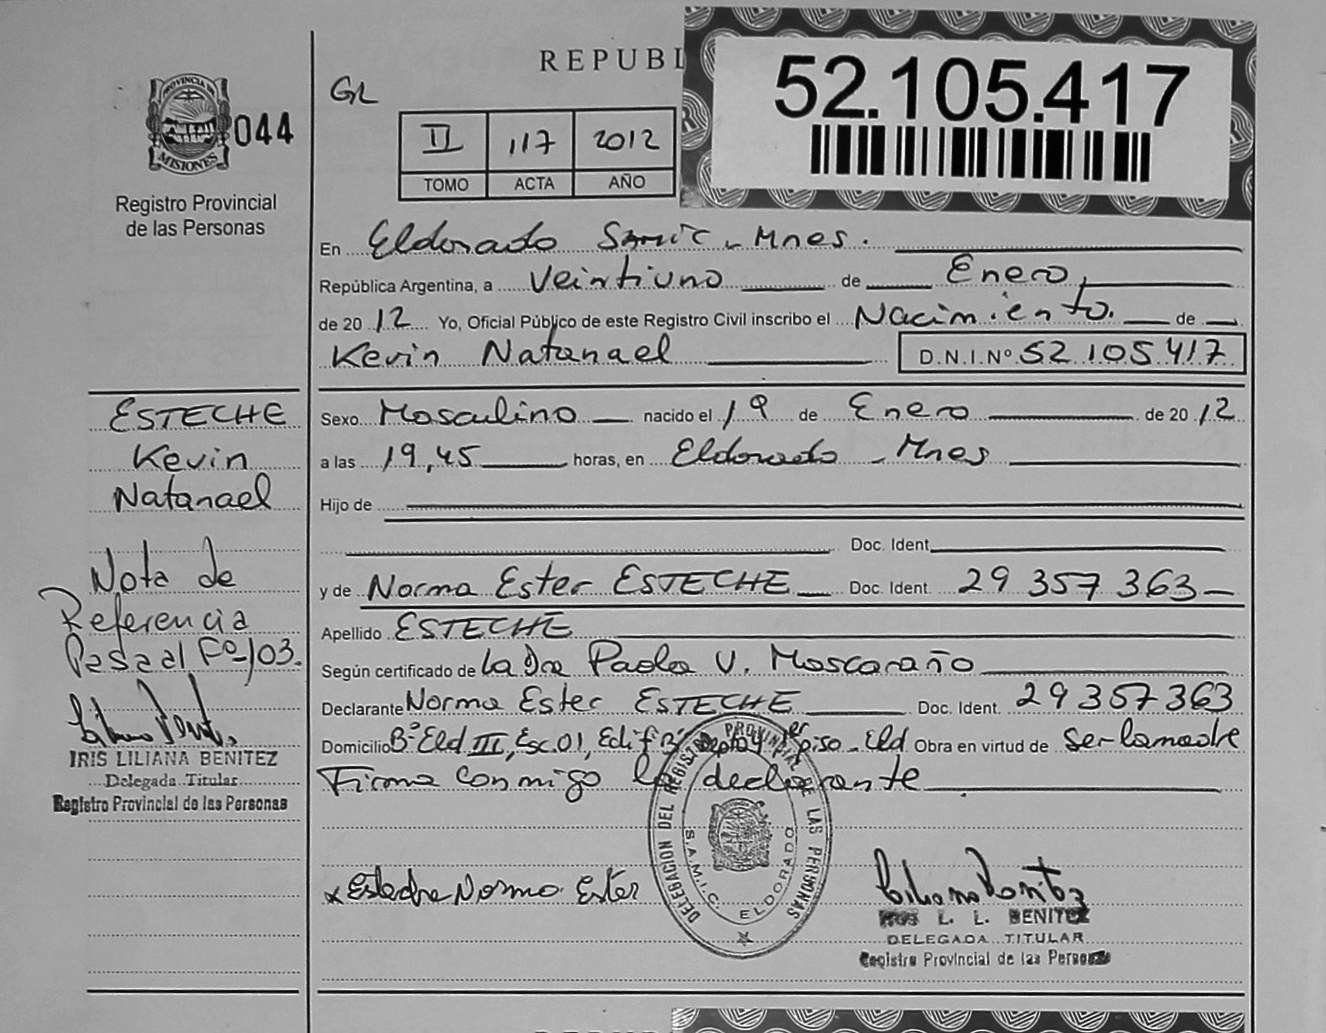 REPUBL
52.105.417
GR
PROVINCIA
MISIONES
044
II 117 2012
TOMO ACTA AÑO
Registro Provincial
de las Personas
En Eldorado Samic - Mnes.
República Argentina, a Veintiuno de Enero,
de 2012 Yo, Oficial Público de este Registro Civil inscribo el Nacimiento. de
Kevin Natanael D.N.I.Nº 52.105.417
ESTECHE
Kevin
Natanael
Sexo Masculino nacido el 1º de Enero de 2012
a las 19,45 horas, en Eldorado - Mnes
Hijo de
Doc. Ident.
y de Norma Ester ESTECHE Doc. Ident. 29 357 363
Apellido ESTECHE
Según certificado de la Dra Paola V. Moscaraño
Declarante Norma Ester ESTECHE Doc. Ident. 29 357 363
Domicilio Bº Eld III, Esc.01, Edif B, Depto 4 1er piso - Eld Obra en virtud de Ser la madre
Firma conmigo la declarante
Nota de
Referencia
Pasa al Fº 103.
IRIS LILIANA BENITEZ
Delegada Titular
Registro Provincial de las Personas
x Esteche Norma Ester
DELEGACION DEL REGISTRO PROVINCIAL DE LAS PERSONAS
S.A.M.I.C. ELDORADO
IRIS L. L. BENITEZ
DELEGADA TITULAR
Registro Provincial de las Personas